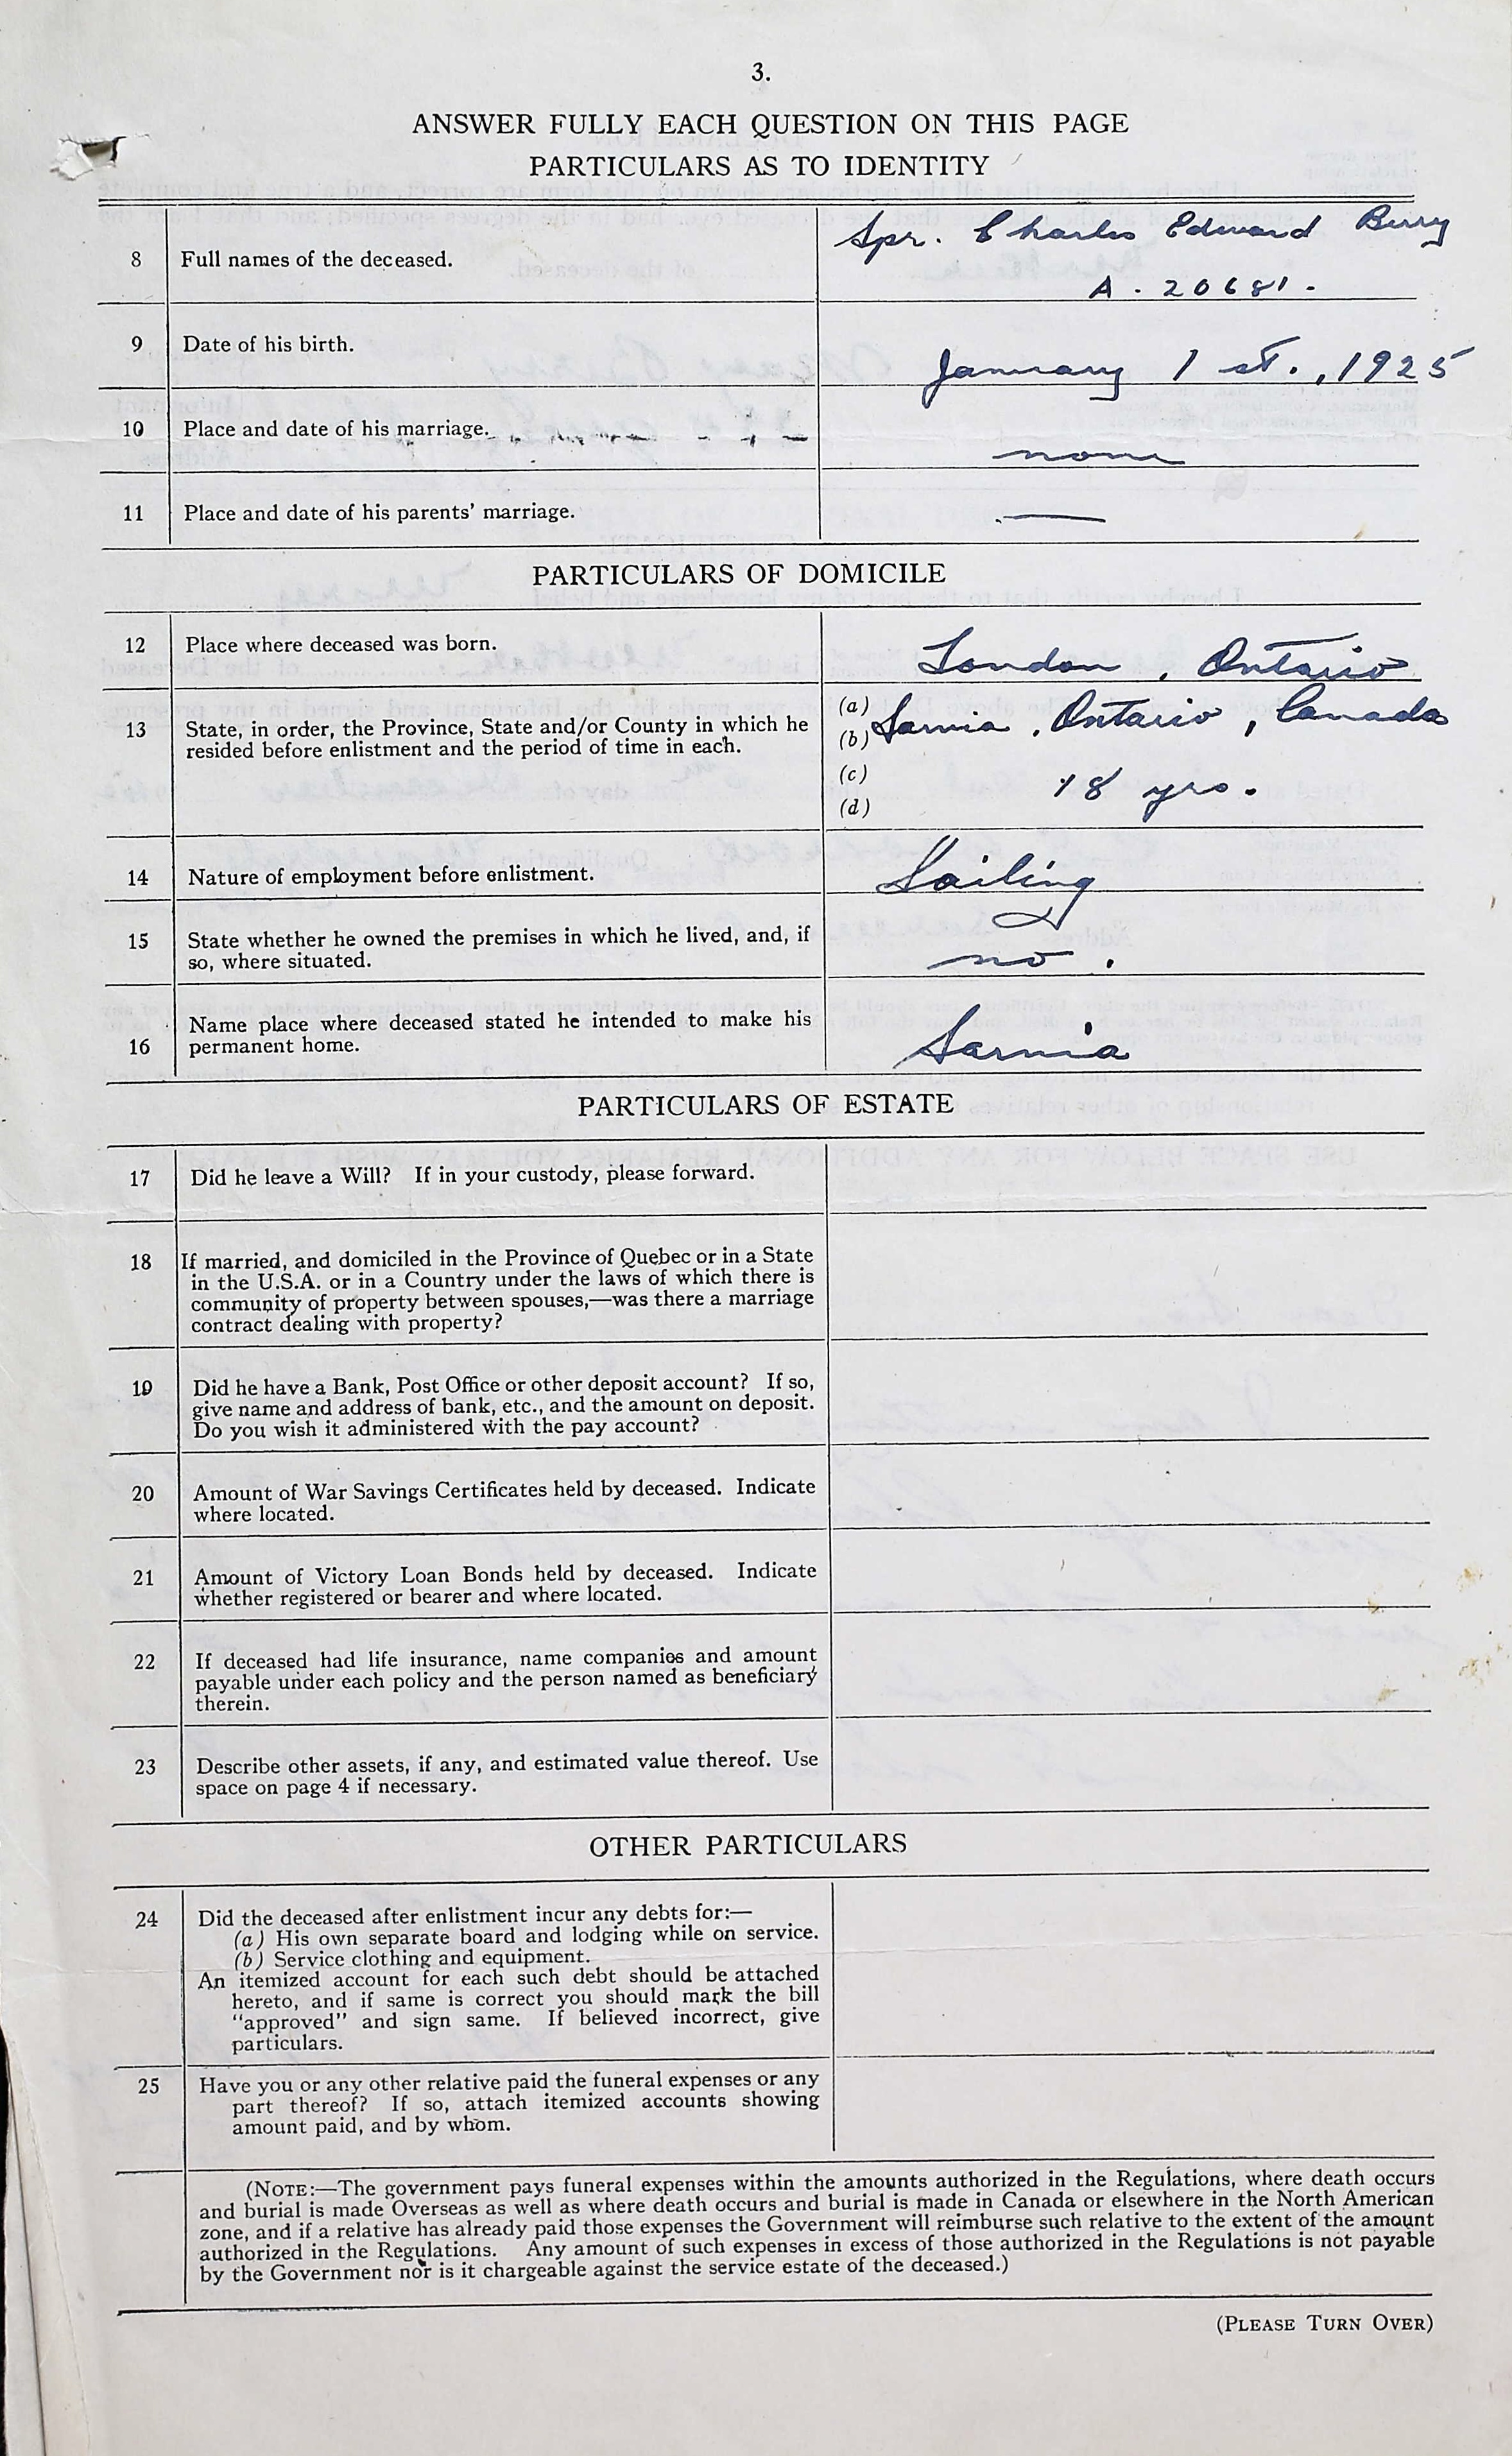 3.
ANSWER FULLY EACH QUESTION ON THIS PAGE
PARTICULARS AS TO IDENTITY
8 Full names of the deceased. Spr. Charles Edward Berry
A. 20681.
9 Date of his birth. January 1 st., 1925
10 Place and date of his marriage. none
11 Place and date of his parents' marriage. —
PARTICULARS OF DOMICILE
12 Place where deceased was born. London, Ontario
13 State, in order, the Province, State and/or County in which he
resided before enlistment and the period of time in each.
(a)
(b) Sarnia, Ontario, Canada
(c) 18 yrs.
(d)
14 Nature of employment before enlistment. Sailing
15 State whether he owned the premises in which he lived, and, if
so, where situated. no.
16 Name place where deceased stated he intended to make his
permanent home. Sarnia
PARTICULARS OF ESTATE
17 Did he leave a Will? If in your custody, please forward.
18 If married, and domiciled in the Province of Quebec or in a State
in the U.S.A. or in a Country under the laws of which there is
community of property between spouses,—was there a marriage
contract dealing with property?
19 Did he have a Bank, Post Office or other deposit account? If so,
give name and address of bank, etc., and the amount on deposit.
Do you wish it administered with the pay account?
20 Amount of War Savings Certificates held by deceased. Indicate
where located.
21 Amount of Victory Loan Bonds held by deceased. Indicate
whether registered or bearer and where located.
22 If deceased had life insurance, name companies and amount
payable under each policy and the person named as beneficiary
therein.
23 Describe other assets, if any, and estimated value thereof. Use
space on page 4 if necessary.
OTHER PARTICULARS
24 Did the deceased after enlistment incur any debts for:—
(a) His own separate board and lodging while on service.
(b) Service clothing and equipment.
An itemized account for each such debt should be attached
hereto, and if same is correct you should mark the bill
"approved" and sign same. If believed incorrect, give
particulars.
25 Have you or any other relative paid the funeral expenses or any
part thereof? If so, attach itemized accounts showing
amount paid, and by whom.
(NOTE:—The government pays funeral expenses within the amounts authorized in the Regulations, where death occurs
and burial is made Overseas as well as where death occurs and burial is made in Canada or elsewhere in the North American
zone, and if a relative has already paid those expenses the Government will reimburse such relative to the extent of the amount
authorized in the Regulations. Any amount of such expenses in excess of those authorized in the Regulations is not payable
by the Government nor is it chargeable against the service estate of the deceased.)
(PLEASE TURN OVER)